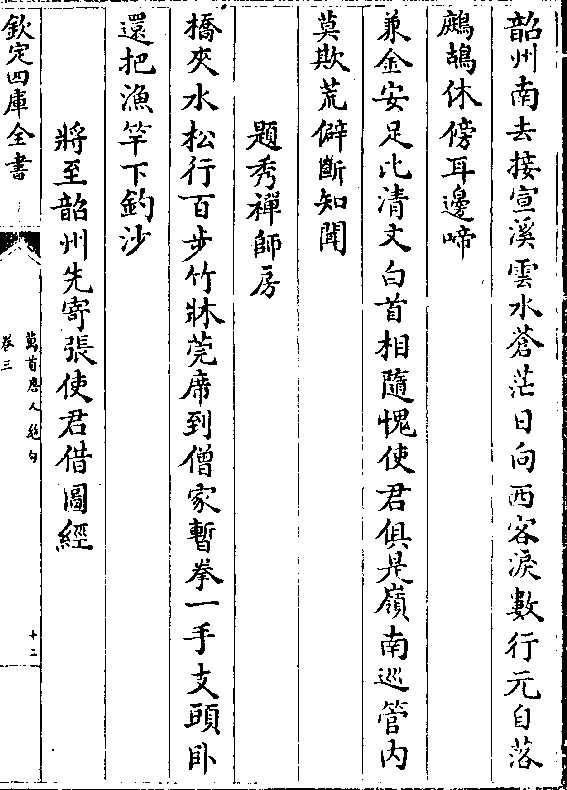 韶州南去接宣溪雲水蒼茫日向西客淚數行元自落
鷓鴣休傍耳邊啼
兼金安足比清文白首相隨愧使君俱是嶺南巡管内
莫欺荒僻斷知聞
題秀禪師房
橋夾水松行百步竹牀莞席到僧家暫拳一手支頭卧
還把漁竿下釣沙
將至韶州先寄張使君借圖經
欽定四庫全書
萬首唐人絶句
卷三
十二